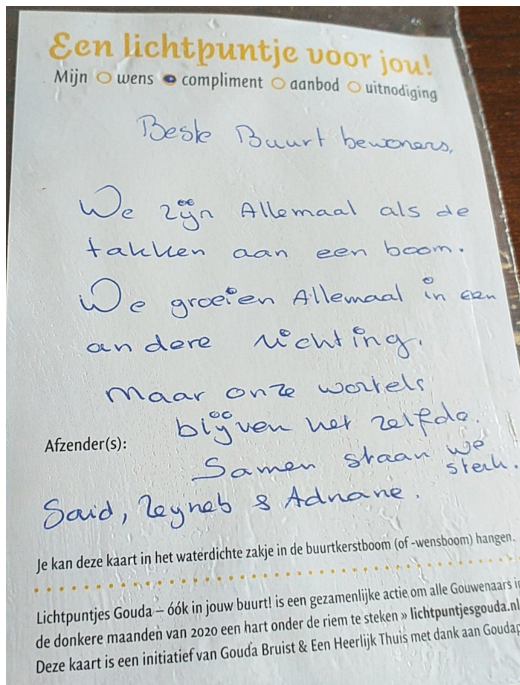 Een lichtpuntje voor jou!
Mijn ○ wens ● compliment ○ aanbod ○ uitnodiging
Beste Buurt bewoners,
We zijn Allemaal als de
takken aan een boom.
We groeien Allemaal in een
andere richting.
Maar onze wortels
blijven het zelfde.
Afzender(s):
Samen staan we
sterk.
Said, Zeyneb & Adnane.
Je kan deze kaart in het waterdichte zakje in de buurtkerstboom (of -wensboom) hangen.
Lichtpuntjes Gouda – óók in jouw buurt! is een gezamenlijke actie om alle Gouwenaars in
de donkere maanden van 2020 een hart onder de riem te steken » lichtpuntjesgouda.nl
Deze kaart is een initiatief van Gouda Bruist & Een Heerlijk Thuis met dank aan